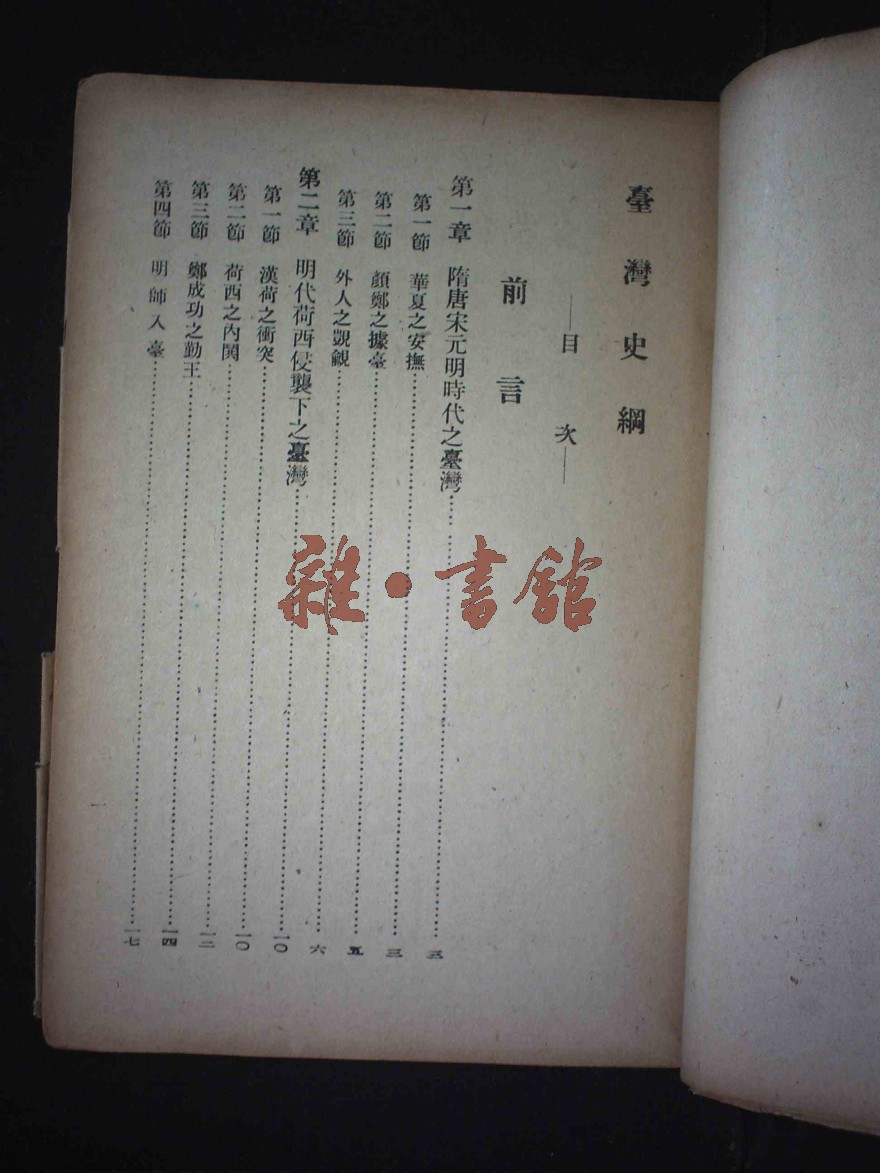 臺灣史綱
——目次——
前言
第一章 隋唐宋元明時代之臺灣……三
第一節 華夏之安撫……三
第二節 顏鄭之據臺……五
第三節 外人之覬覦……六
第二章 明代荷西侵襲下之臺灣……一〇
第一節 漢荷之衝突……一〇
第二節 荷西之內鬨……一二
第三節 鄭成功之勤王……一四
第四節 明師入臺……一七
雜·書館